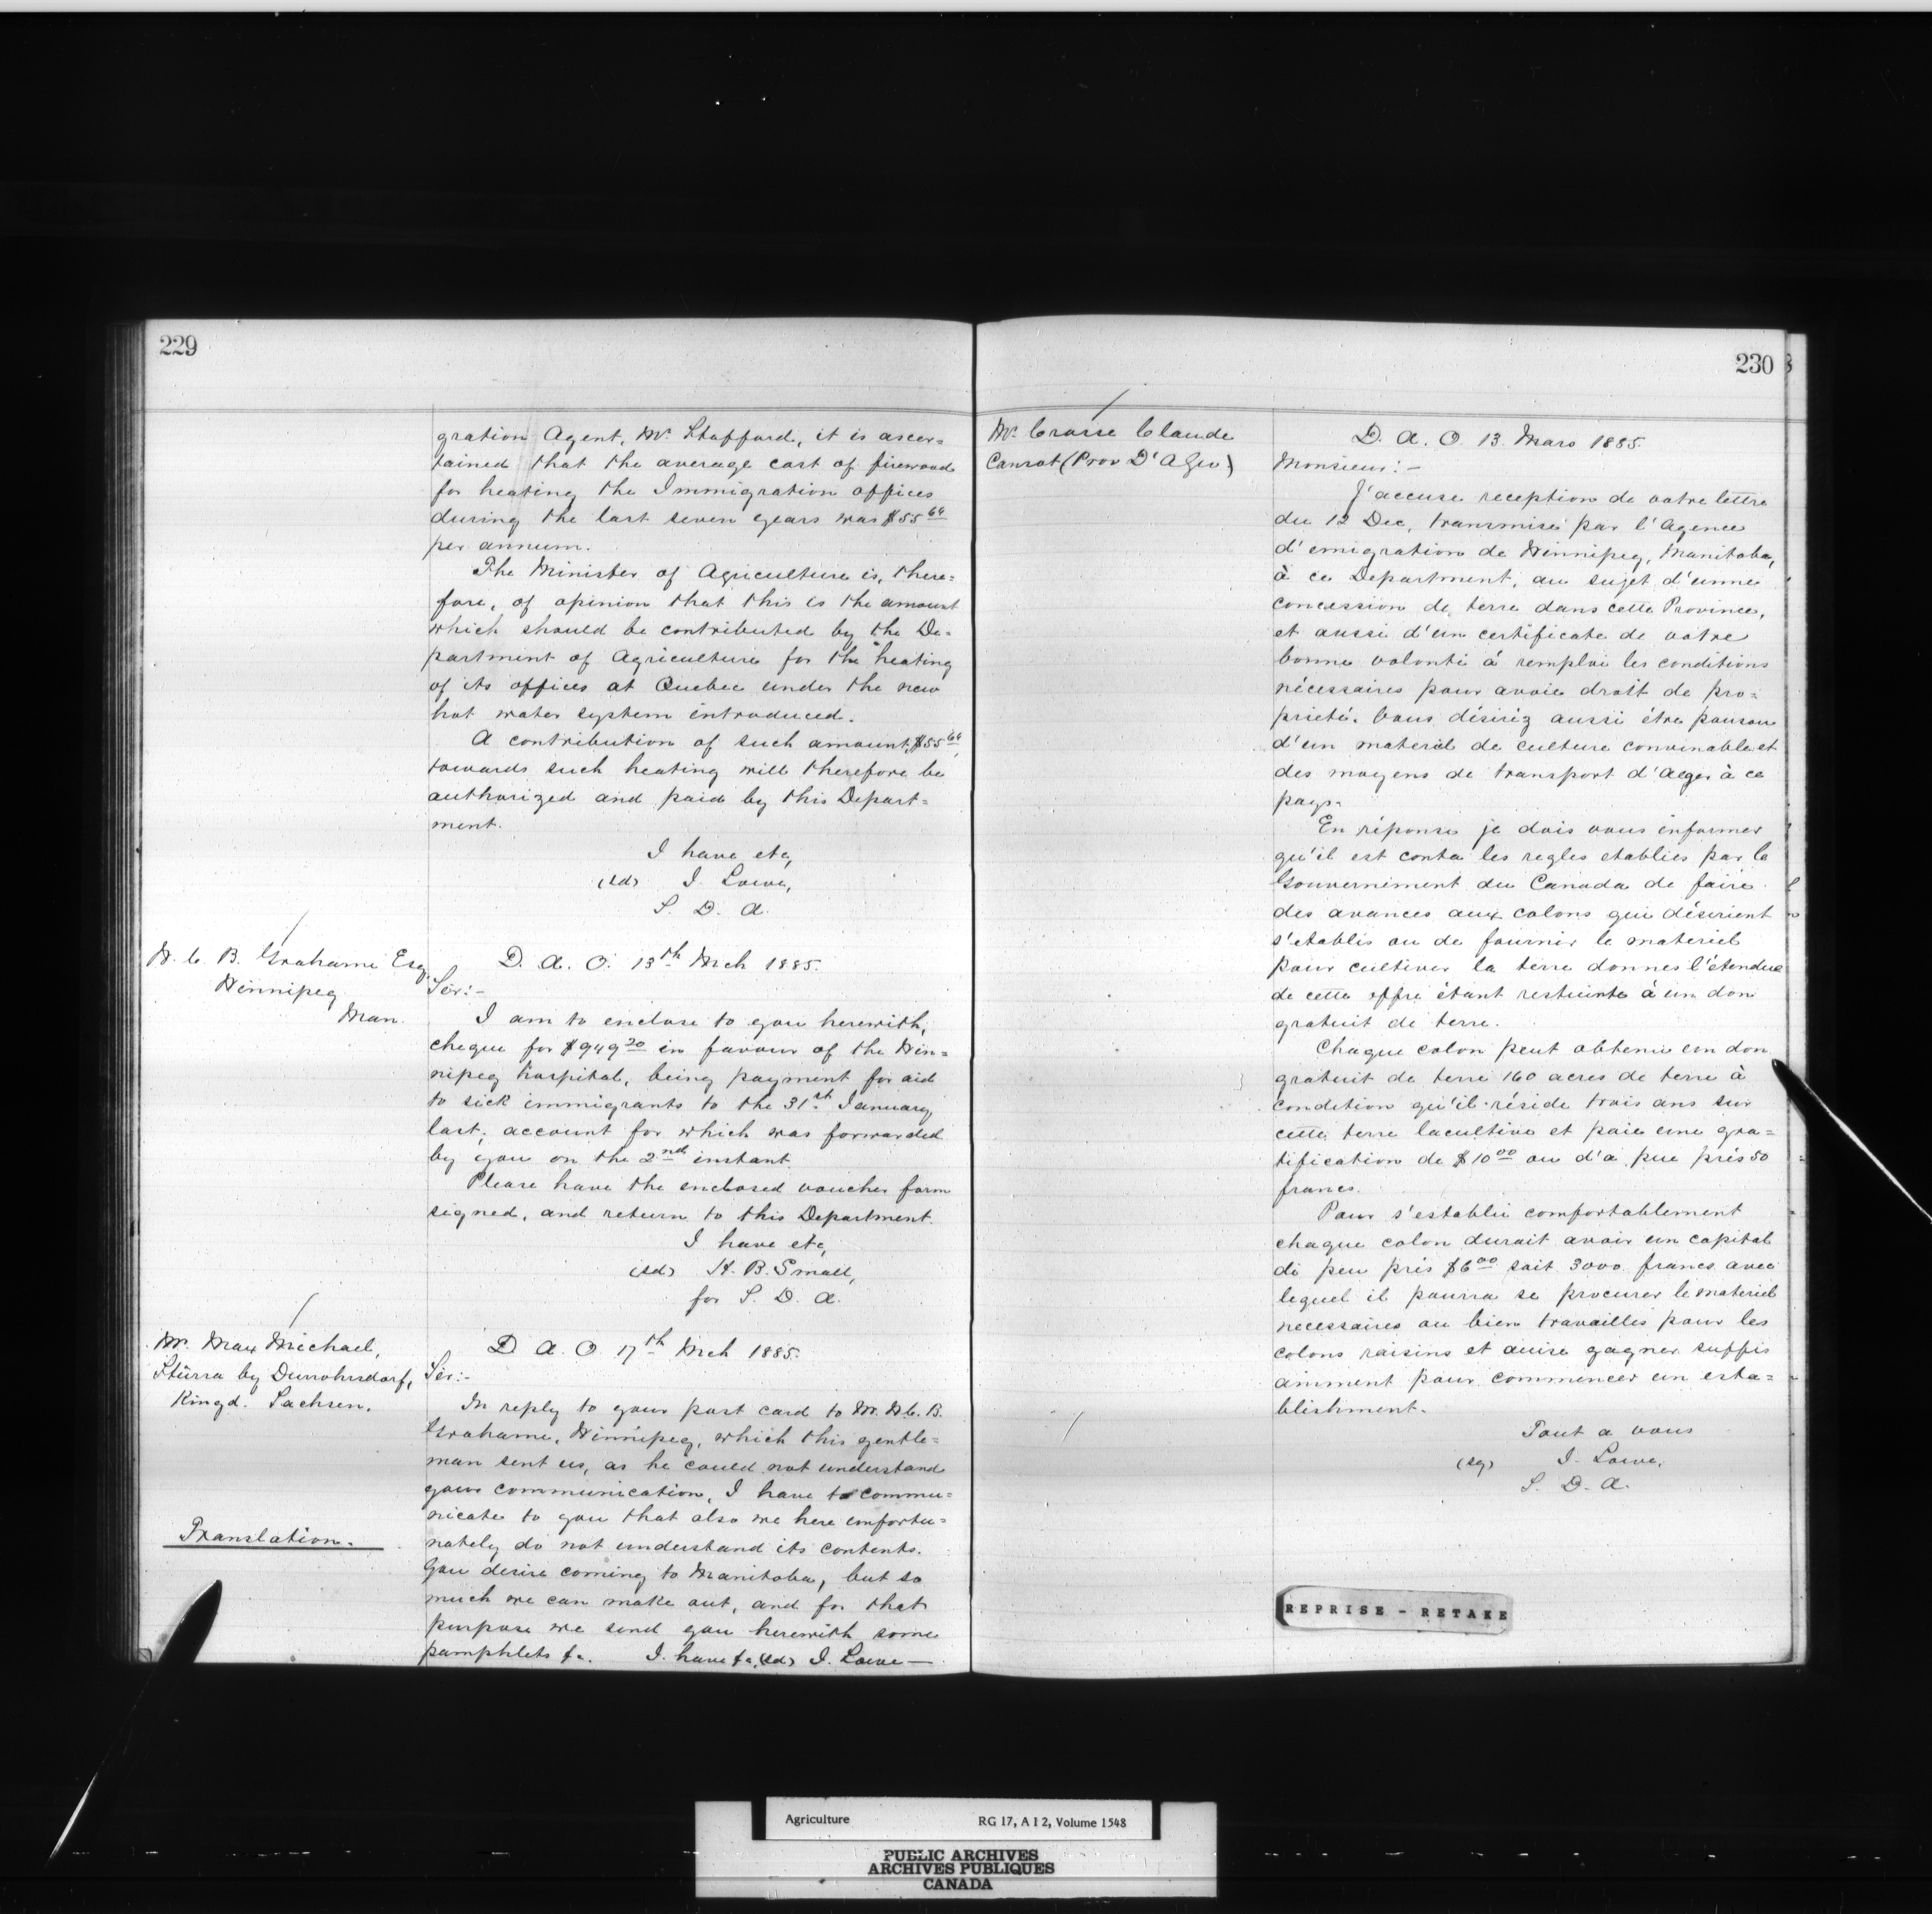 229
gration Agent, Mr. Stafford, it is ascer=
tained that the average cost of firewood
for heating the Immigration offices
during the last seven years was $55 64
per annum.
The Minister of Agriculture is, there=
fore, of opinion that this is the amount
which should be contributed by the De=
partment of Agriculture for the heating
of its offices at Quebec under the new
hot water system introduced.
A contribution of such amount, $55 64,
towards such heating will therefore be
authorized and paid by this Depart=
ment.
I have etc,
(sd) J. Lowe,
S. D. A.
W. C. B. Grahame Esq.
Winnipeg
Man.
D. A. O. 13th Mch 1885.
Sir:-
I am to enclose to you herewith,
cheque for $949 20 in favour of the Win=
nipeg hospital, being payment for aid
to sick immigrants to the 31st January
last; account for which was forwarded
by you on the 2nd instant.
Please have the enclosed voucher form
signed, and return to this Department.
I have etc,
(sd) H. B. Small,
for S. D. A.
Mr. Max Michael,
Stürza by Durrohrsdorf,
Kingd. Sachsen.
D. A. O. 17th Mch 1885.
Sir:-
In reply to your post card to Mr. W. C. B.
Grahame, Winnipeg, which this gentle=
man sent us, as he could not understand
your communication, I have to commu=
nicate to you that also we here unfortu=
nately do not understand its contents.
You desire coming to Manitoba, but so
much we can make out, and for that
purpose we send you herewith some
pamphlets &c. I have &c, (sd) J. Lowe —
Translation.
230
Mr. Crasse Claude
Canrot (Prov D'Alger)
D. A. O. 13 Mars 1885.
Monsieur:-
J'accuse reception de votre lettre
du 12 Dec, transmise par l'Agence
d'emigration de Winnipeg, Manitoba,
à ce Department, au sujet d'unne
concession de terre dans cette Province,
et aussi d'un certificate de votre
bonne volonté à remploi les conditions
nécessaires pour avoir droit de pro=
prieté. Vous désiréz aussi étre pourou
d'un materiel de culture convinable et
des moyens de transport d'Alger à ce
pays.
En réponse je dois vous informer
qu'il est conta les regles etablies par le
Gouvernement du Canada de faire
des avances aux colons qui désirient
s'etablis ou de fournir le materiel
pour cultiver la terre donnes l'étendue
de cette offre étant restiente à un don
gratuit de terre.
Chaque colon peut obtenir un don
gratuit de terre 160 acres de terre à
condition qu'il réside trois ans sur
cette terre lacultive et paie une gra=
tification de $10 00 ou d'a peu prés 50
francs.
Pour s'establir comfortablement
chaque colon durait avoir un capital
di peu prés $6 00 soit 3000 francs avec
lequel il pourra se procurer le materiel
necessaires ou bien travailles pour les
colons raisins et ainse gagner suffis
amment pour commencer un esta=
blishment.
Tout a vous
(sg) J. Lowe,
S. D. A.
REPRISE - RETAKE
Agriculture RG 17, A I 2, Volume 1548
PUBLIC ARCHIVES
ARCHIVES PUBLIQUES
CANADA